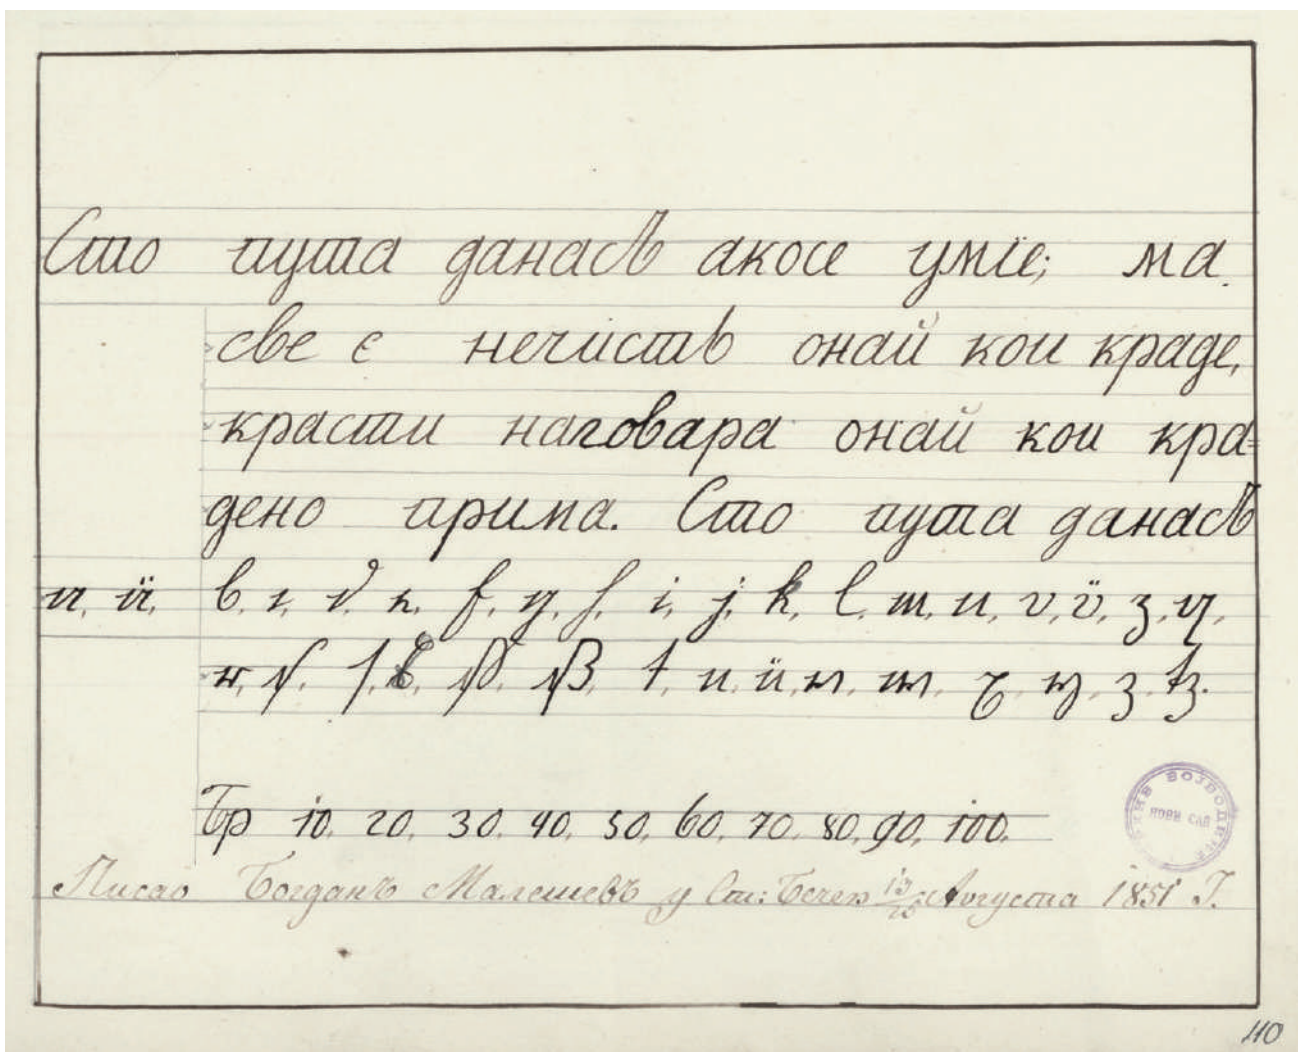 Сто пута данасъ акосе уміе; ма
све е нечистъ онай кои краде,
красти наговара онай кои кра=
дено прима. Сто пута данасъ
a. ä. b. c. d. e. f. g. h. i. j. k. l. m. n. o. ö. p. q.
r. s. ß. t. u. ü. v. w. x. y. z. tz.
Бр 10. 20. 30. 40. 50. 60. 70. 80. 90. 100.
Писао Богданъ Малешевъ у Ст: Бечею 13/25 Августа 1851 Г.
АРХИВ ВОЈВОДИНЕ
НОВИ САД
110